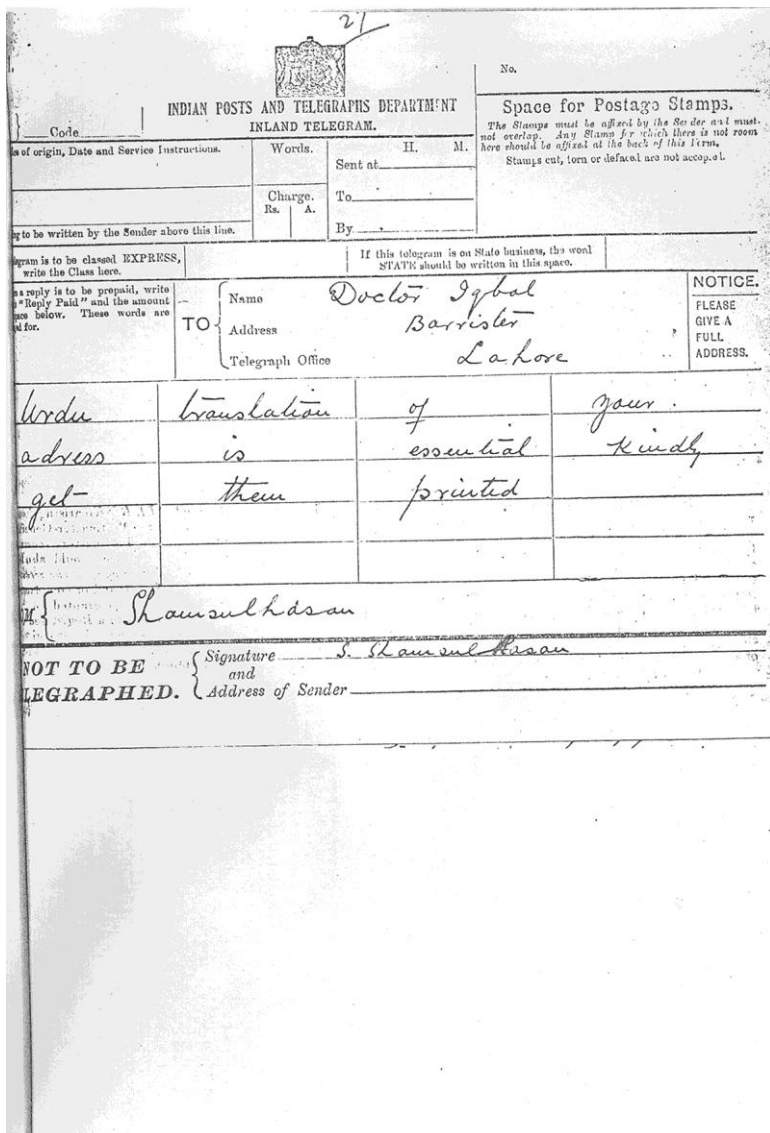 21
No.
Code
INDIAN POSTS AND TELEGRAPHS DEPARTMENT
INLAND TELEGRAM.
Space for Postage Stamps.
The Stamps must be affixed by the Sender and must
not overlap. Any Stamp for which there is not room
here should be affixed at the back of this Form.
Stamps cut, torn or defaced are not accepted.
of origin, Date and Service Instructions.
Words.
H. M.
Sent at
Charge.
Rs. A.
To
By
to be written by the Sender above this line.
gram is to be classed EXPRESS,
write the Class here.
If this telegram is on State business, the word
STATE should be written in this space.
a reply is to be prepaid, write
"Reply Paid" and the amount
below. These words are
for.
TO
Name Doctor Iqbal
Address Barrister
Telegraph Office Lahore
NOTICE.
PLEASE
GIVE A
FULL
ADDRESS.
Urdu translation of your
adress is essential Kindly
get them printed
Shamsulhasan
NOT TO BE
LEGRAPHED.
Signature S. Shamsul Hasan
and
Address of Sender